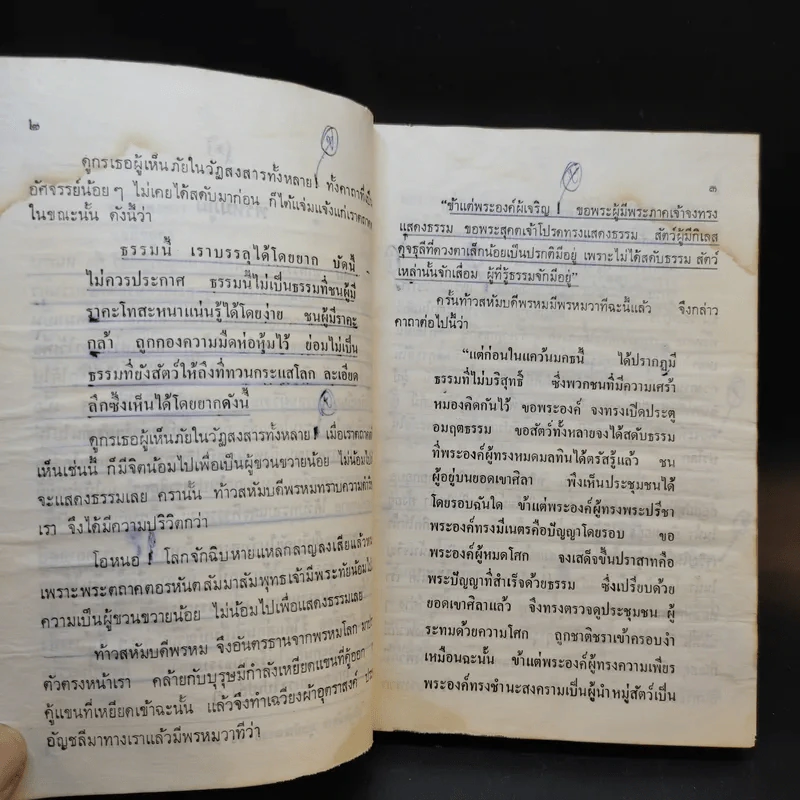 ๒
ดูกรเธอผู้เห็นภัยในวัฏสงสารทั้งหลาย! ทั้งคาถาที่เป็น
อัศจรรย์น้อยๆ ไม่เคยได้สดับมาก่อน ก็ได้แจ่มแจ้งแก่เราตถาคต
ในขณะนั้น ดังนี้ว่า
ธรรมนี้ เราบรรลุได้โดยยาก บัดนี้
ไม่ควรประกาศ ธรรมนี้ไม่เป็นธรรมที่ชนผู้มี
ราคะโทสะหนาแน่นรู้ได้โดยง่าย ชนผู้มีราคะ
กล้า ถูกกองความมืดห่อหุ้มไว้ ย่อมไม่เป็น
ธรรมที่ยังสัตว์ให้ถึงที่ทวนกระแสโลก ละเอียด
ลึกซึ้งเห็นได้โดยยากดังนี้
ดูกรเธอผู้เห็นภัยในวัฏสงสารทั้งหลาย! เมื่อเราตถาคต
เห็นเช่นนี้ ก็มีจิตน้อมไปเพื่อเป็นผู้ขวนขวายน้อย ไม่น้อมไป
จะแสดงธรรมเลย ครานั้น ท้าวสหัมบดีพรหมทราบความดำริ
เรา จึงได้มีความปริวิตกว่า
โอหนอ! โลกจักฉิบหายแหลกลาญลงเสียแล้ว
เพราะพระตถาคตอรหันตสัมมาสัมพุทธเจ้ามีพระทัยน้อม
ความเป็นผู้ขวนขวายน้อย ไม่น้อมไปเพื่อแสดงธรรมเลย
ท้าวสหัมบดีพรหม จึงอันตรธานจากพรหมโลก มา
ตัวตรงหน้าเรา คล้ายกับบุรุษมีกำลังเหยียดแขนที่คู้ออก
คู้แขนที่เหยียดเข้าฉะนั้น แล้วจึงทำเฉวียงผ้าอุตราสงค์
อัญชลีมาทางเราแล้วมีพรหมวาทีว่า
๓
"ข้าแต่พระองค์ผู้เจริญ! ขอพระผู้มีพระภาคเจ้าจงทรง
แสดงธรรม ขอพระสุคตเจ้าโปรดทรงแสดงธรรม สัตว์ผู้มีกิเลส
ดุจธุลีที่ดวงตาเล็กน้อยเป็นปรกติมีอยู่ เพราะไม่ได้สดับธรรม สัตว์
เหล่านั้นจักเสื่อม ผู้ที่รู้ธรรมจักมีอยู่"
ครั้นท้าวสหัมบดีพรหมมีพรหมวาทีฉะนี้แล้ว จึงกล่าว
คาถาต่อไปนี้ว่า
"แต่ก่อนในแคว้นมคธนี้ ได้ปรากฏมี
ธรรมที่ไม่บริสุทธิ์ ซึ่งพวกชนที่มีความเศร้า
หมองคิดกันไว้ ขอพระองค์ จงทรงเปิดประตู
อมฤตธรรม ขอสัตว์ทั้งหลายจงได้สดับธรรม
ที่พระองค์ผู้ทรงหมดมลทินได้ตรัสรู้แล้ว ชน
ผู้อยู่บนยอดเขาศิลา พึงเห็นประชุมชนได้
โดยรอบฉันใด ข้าแต่พระองค์ผู้ทรงพระปรีชา
พระองค์ทรงมีเนตรคือปัญญาโดยรอบ ขอ
พระองค์ผู้หมดโศก จงเสด็จขึ้นปราสาทคือ
พระปัญญาที่สำเร็จด้วยธรรม ซึ่งเปรียบด้วย
ยอดเขาศิลาแล้ว จึงทรงตรวจดูประชุมชน ผู้
ระทมด้วยความโศก ถูกชาติชราเข้าครอบงำ
เหมือนฉะนั้น ข้าแต่พระองค์ผู้ทรงความเพียร
พระองค์ทรงชำนะสงครามเป็นผู้นำหมู่สัตว์เป็น